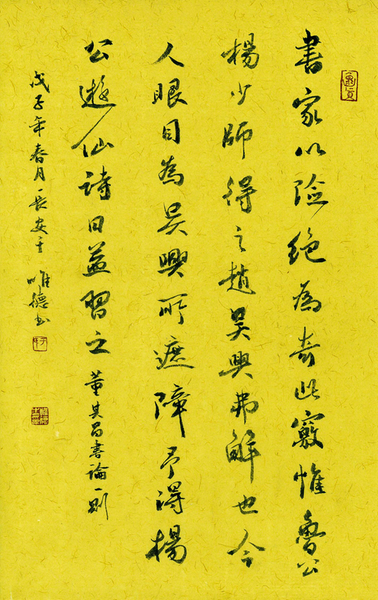 書家以險絕為奇此竅惟魯公
楊少師得之趙吳興弗解也今
人眼目為吳興所遮障予得楊
公遊仙詩日益習之 董其昌書論一則
戊子年春月 長安王唯德書